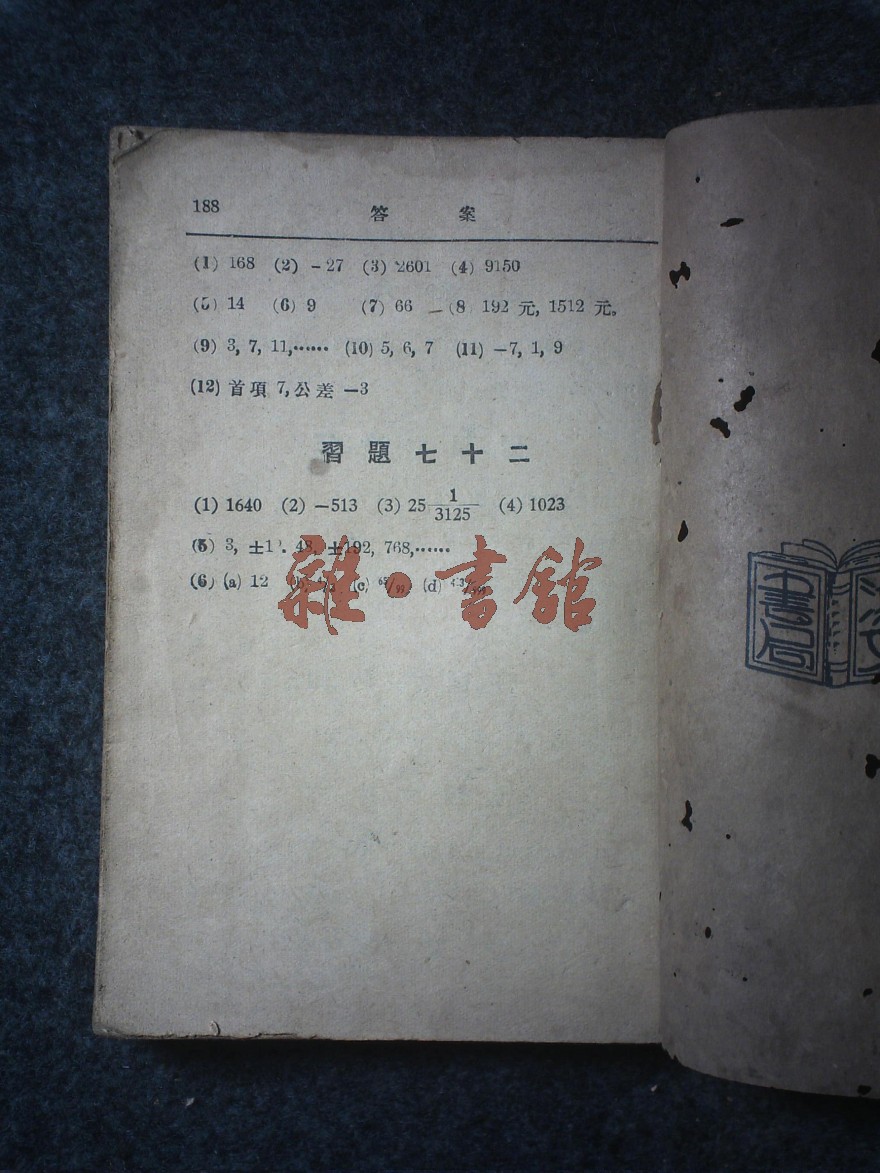 188
答 案
(1) 168 (2) -27 (3) 2601 (4) 9150
(5) 14 (6) 9 (7) 66 (8) 192 元, 1512 元。
(9) 3, 7, 11,…… (10) 5, 6, 7 (11) -7, 1, 9
(12) 首項 7, 公差 -3
習題七十二
(1) 1640 (2) -513 (3) 25 1/3125 (4) 1023
(5) 3, 48, ±192, 768,……
(6) (a) 12 (c) (d)
雜·書館
書局